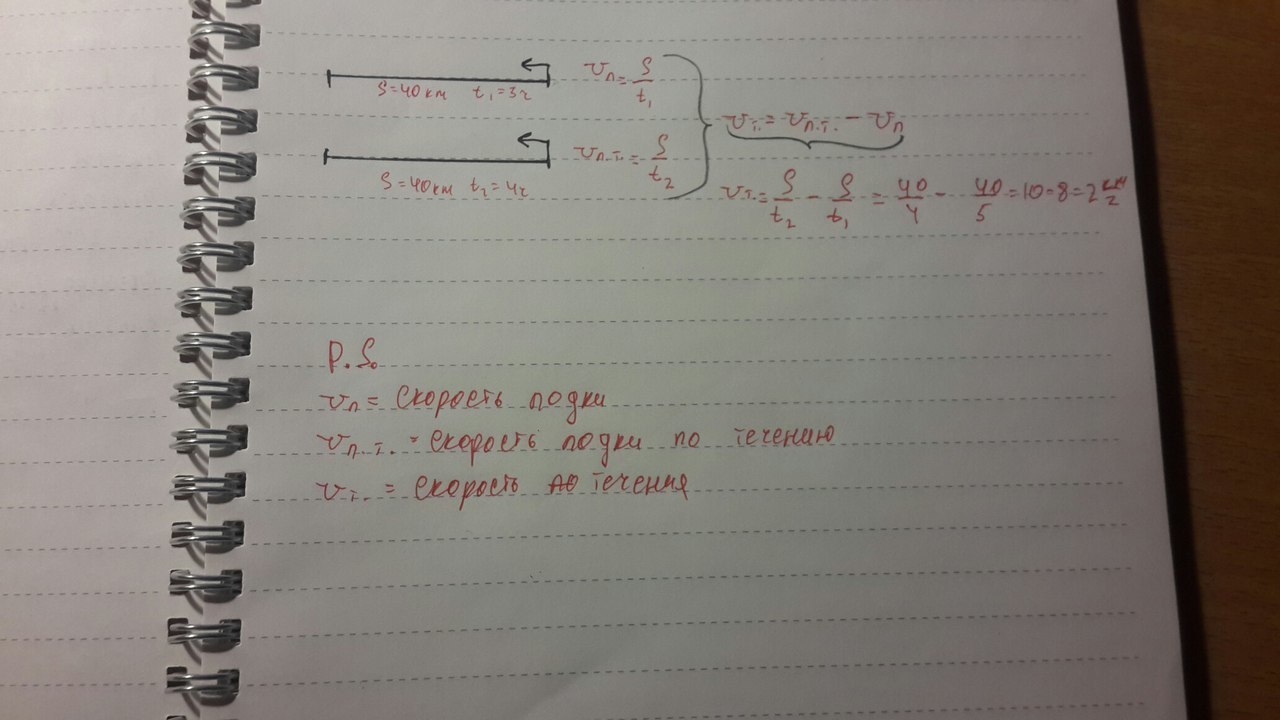 S=40км t₁=3ч
vл=S/t₁
S=40км t₂=4ч
vл.т.=S/t₂
vт.=vл.т.-vл
vт.=S/t₂-S/t₁=40/4-40/5=10-8=2 км/ч
P.S.
vл=скорость лодки
vл.т.=скорость лодки по течению
vт.=скорость течения